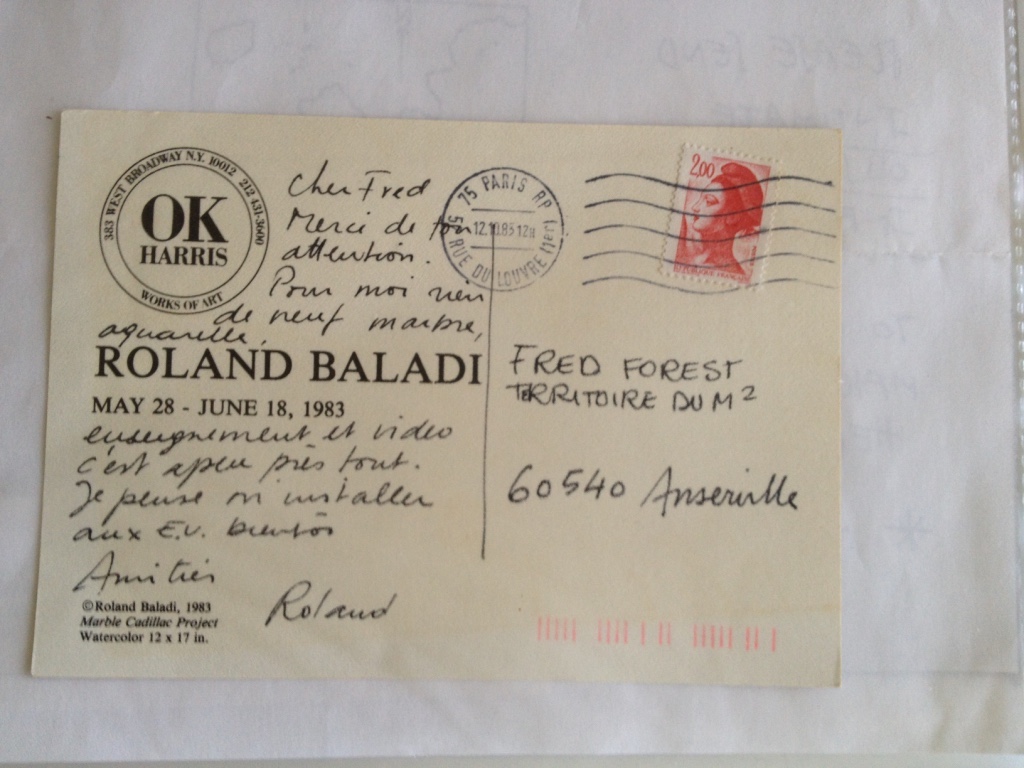 383 WEST BROADWAY N.Y. 10012 212 431-3600
OK
HARRIS
WORKS OF ART
Cher Fred
Merci de ton
attention.
Pour moi rien
de neuf marbre,
aquarelle,
ROLAND BALADI
MAY 28 - JUNE 18, 1983
enseignement et video
c'est apeu près tout.
Je pense m'installer
aux E.U. bientôt
Amitiés
Roland
©Roland Baladi, 1983
Marble Cadillac Project
Watercolor 12 x 17 in.
75 PARIS RP
12.10.83 12H
52 RUE DU LOUVRE (1er)
2,00
REPUBLIQUE FRANÇAISE
FRED FOREST
TERRITOIRE DU M²
60540 Anserville
PLEASE SEND